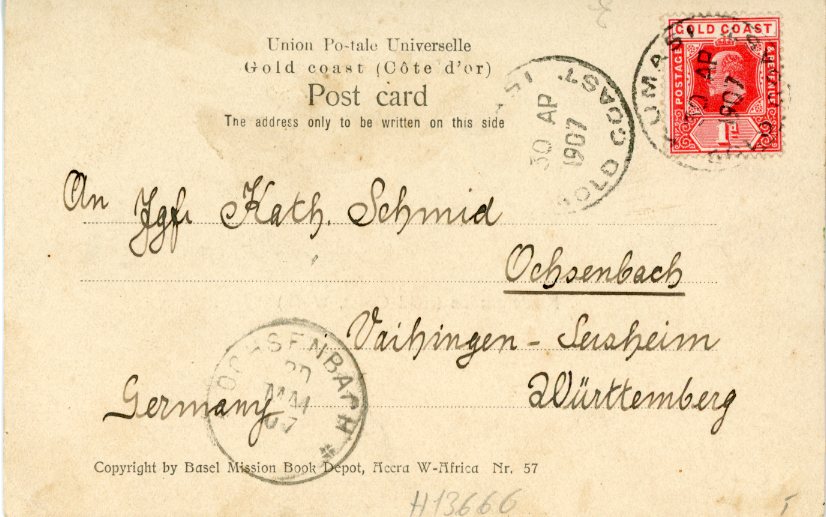 Union Postale Universelle
Gold coast (Côte d'or)
Post card
The address only to be written on this side
GOLD COAST
POSTAGE & REVENUE
1d
KUMASI
30 AP
1907
GOLD COAST
30 AP
1907
GOLD COAST
An Jgfr. Kath. Schmid
Ochsenbach
Vaihingen - Sersheim
Germany Württemberg
OCHSENBACH
MAI
07
Copyright by Basel Mission Book Depot, Accra W-Africa Nr. 57
H13666